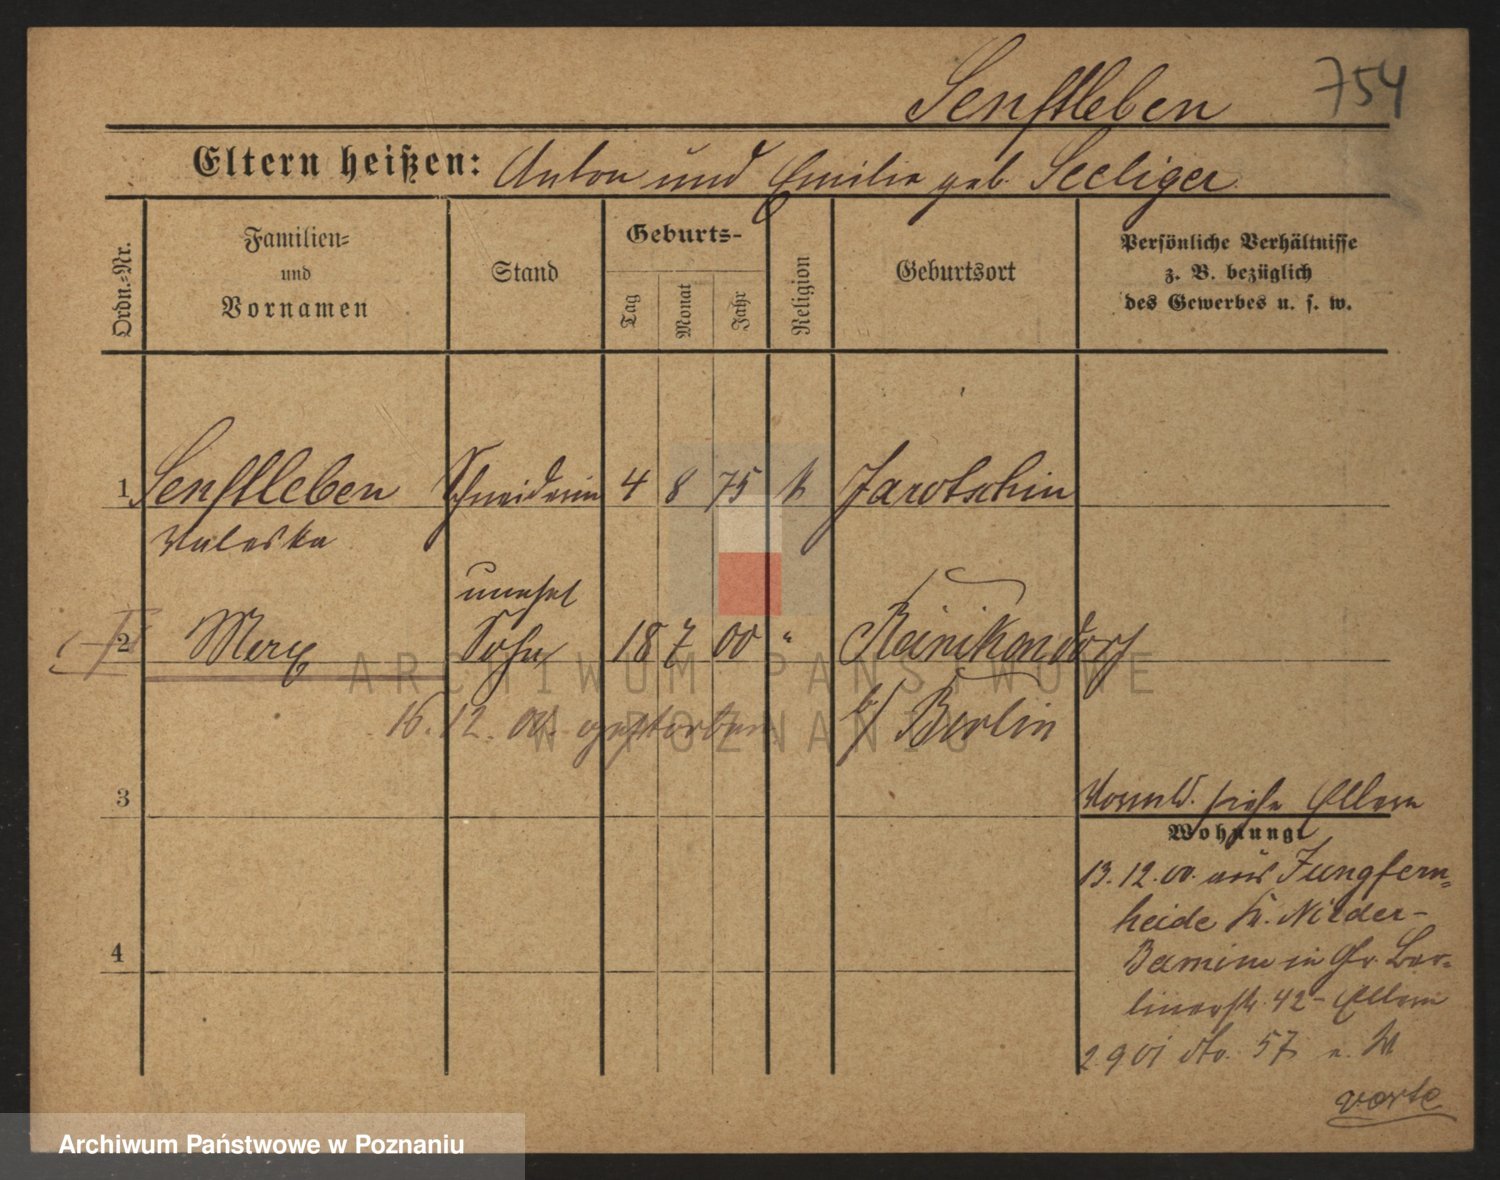 Senftleben 754
Eltern heißen: Anton und Emilie geb. Seeliger
Ordn.=Nr.
Familien=
und
Vornamen
Stand
Geburts-
Tag
Monat
Jahr
Religion
Geburtsort
Persönliche Verhältnisse
z. B. bezüglich
des Gewerbes u. s. w.
1 Senftleben Schneiderin 4 8 75 k Jarotschin
Valeska
unehel
2 Sohn 18 7 00 " Reinikendorf
16.12.00. gestorben b/ Berlin
3
Vormld. siehe Eltern
Wohnung:
13.12.00. aus Jungfern=
heide Kr. Nieder-
Barnim in Gr. Ber=
linerstr. 42 - Eltern
4
2 9 01 dto. 57
ARCHIWUM PAŃSTWOWE
W POZNANIU
Archiwum Państwowe w Poznaniu